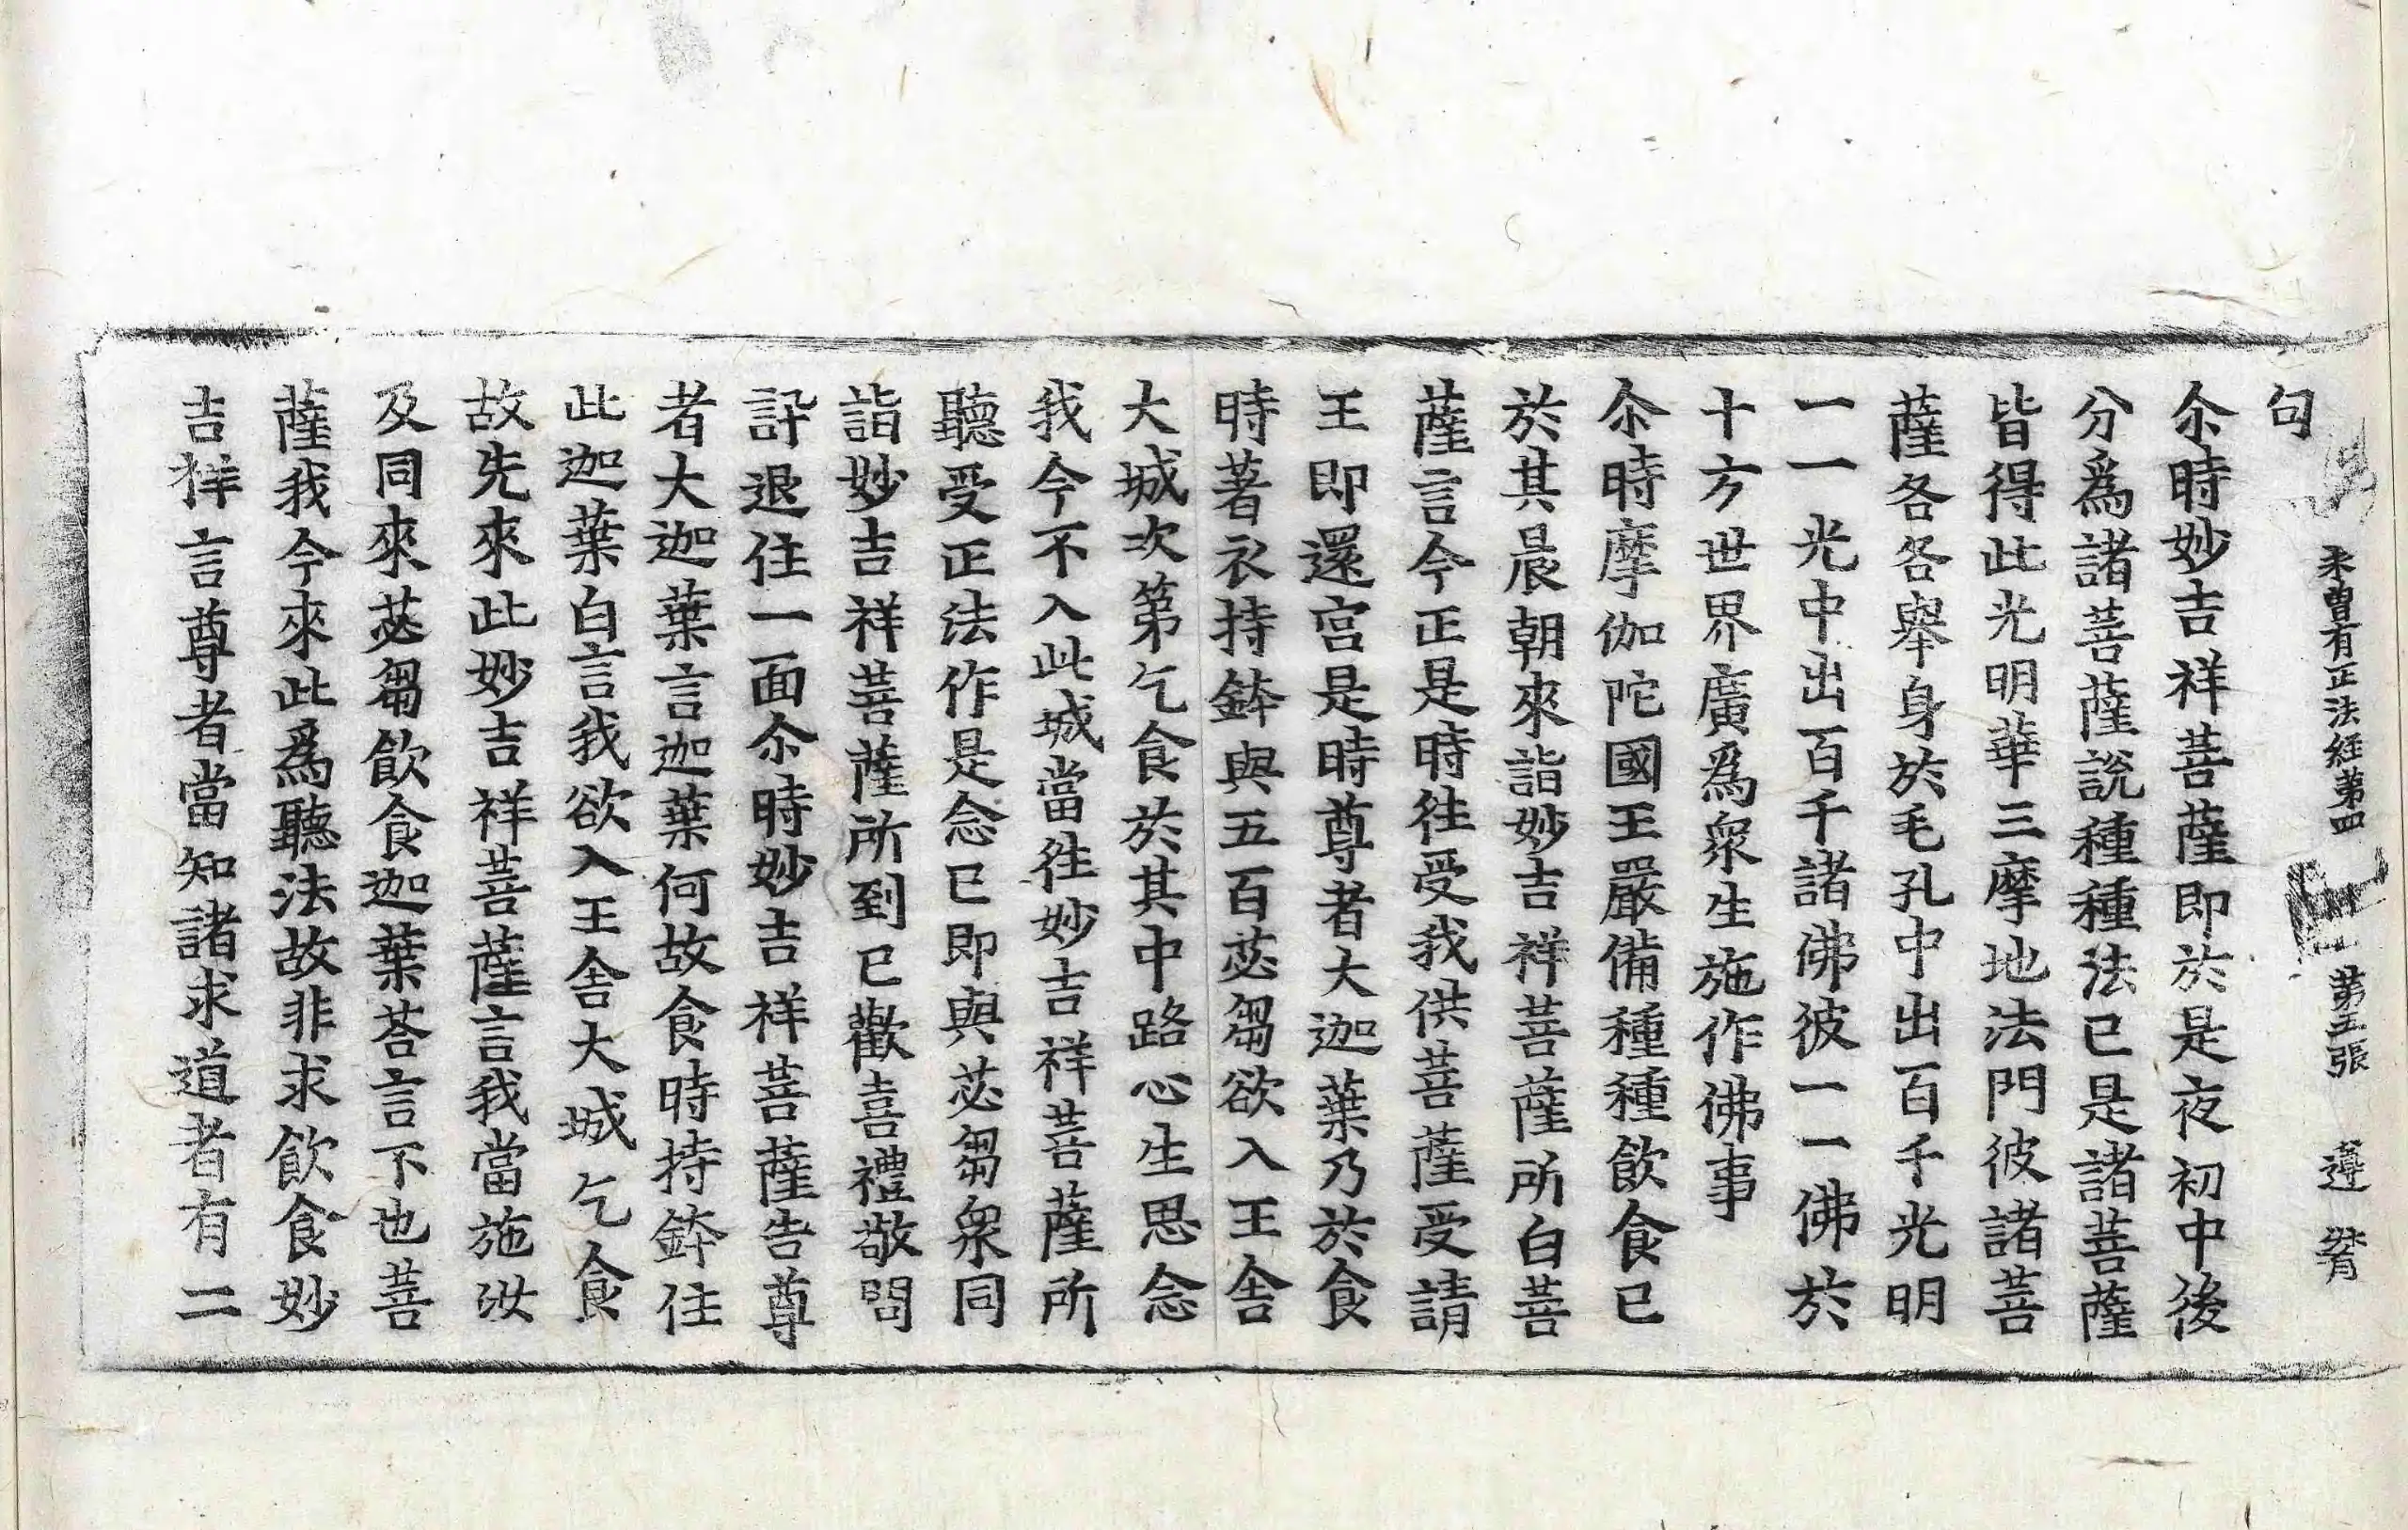 句
未曾有正法經第四 第五張 遵
尒時妙吉祥菩薩即於是夜初中後
分爲諸菩薩說種種法已是諸菩薩
皆得此光明華三摩地法門彼諸菩
薩各各舉身於毛孔中出百千光明
一一光中出百千諸佛彼一一佛於
十方世界廣爲衆生施作佛事
尒時摩伽陀國王嚴備種種飲食已
於其晨朝來詣妙吉祥菩薩所白菩
薩言今正是時徃受我供菩薩受請
王即還宮是時尊者大迦葉乃於食
時著衣持鉢與五百苾芻欲入王舍
大城次第乞食於其中路心生思念
我今不入此城當徃妙吉祥菩薩所
聽受正法作是念已即與苾芻衆同
詣妙吉祥菩薩所到已歡喜禮敬問
訊退住一面尒時妙吉祥菩薩告尊
者大迦葉言迦葉何故食時持鉢住
此迦葉白言我欲入王舍大城乞食
故先來此妙吉祥菩薩言我當施汝
及同來苾芻飲食迦葉荅言下也菩
薩我今來此爲聽法故非求飲食妙
吉祥言尊者當知諸求道者有二